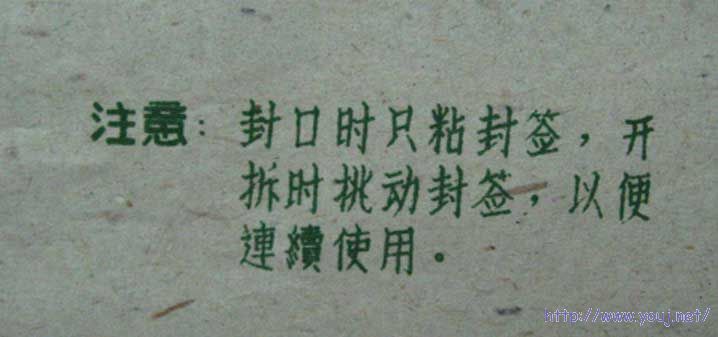 注意：封口时只粘封签，开
拆时挑动封签，以便
連續使用。
http://www.youj.net/